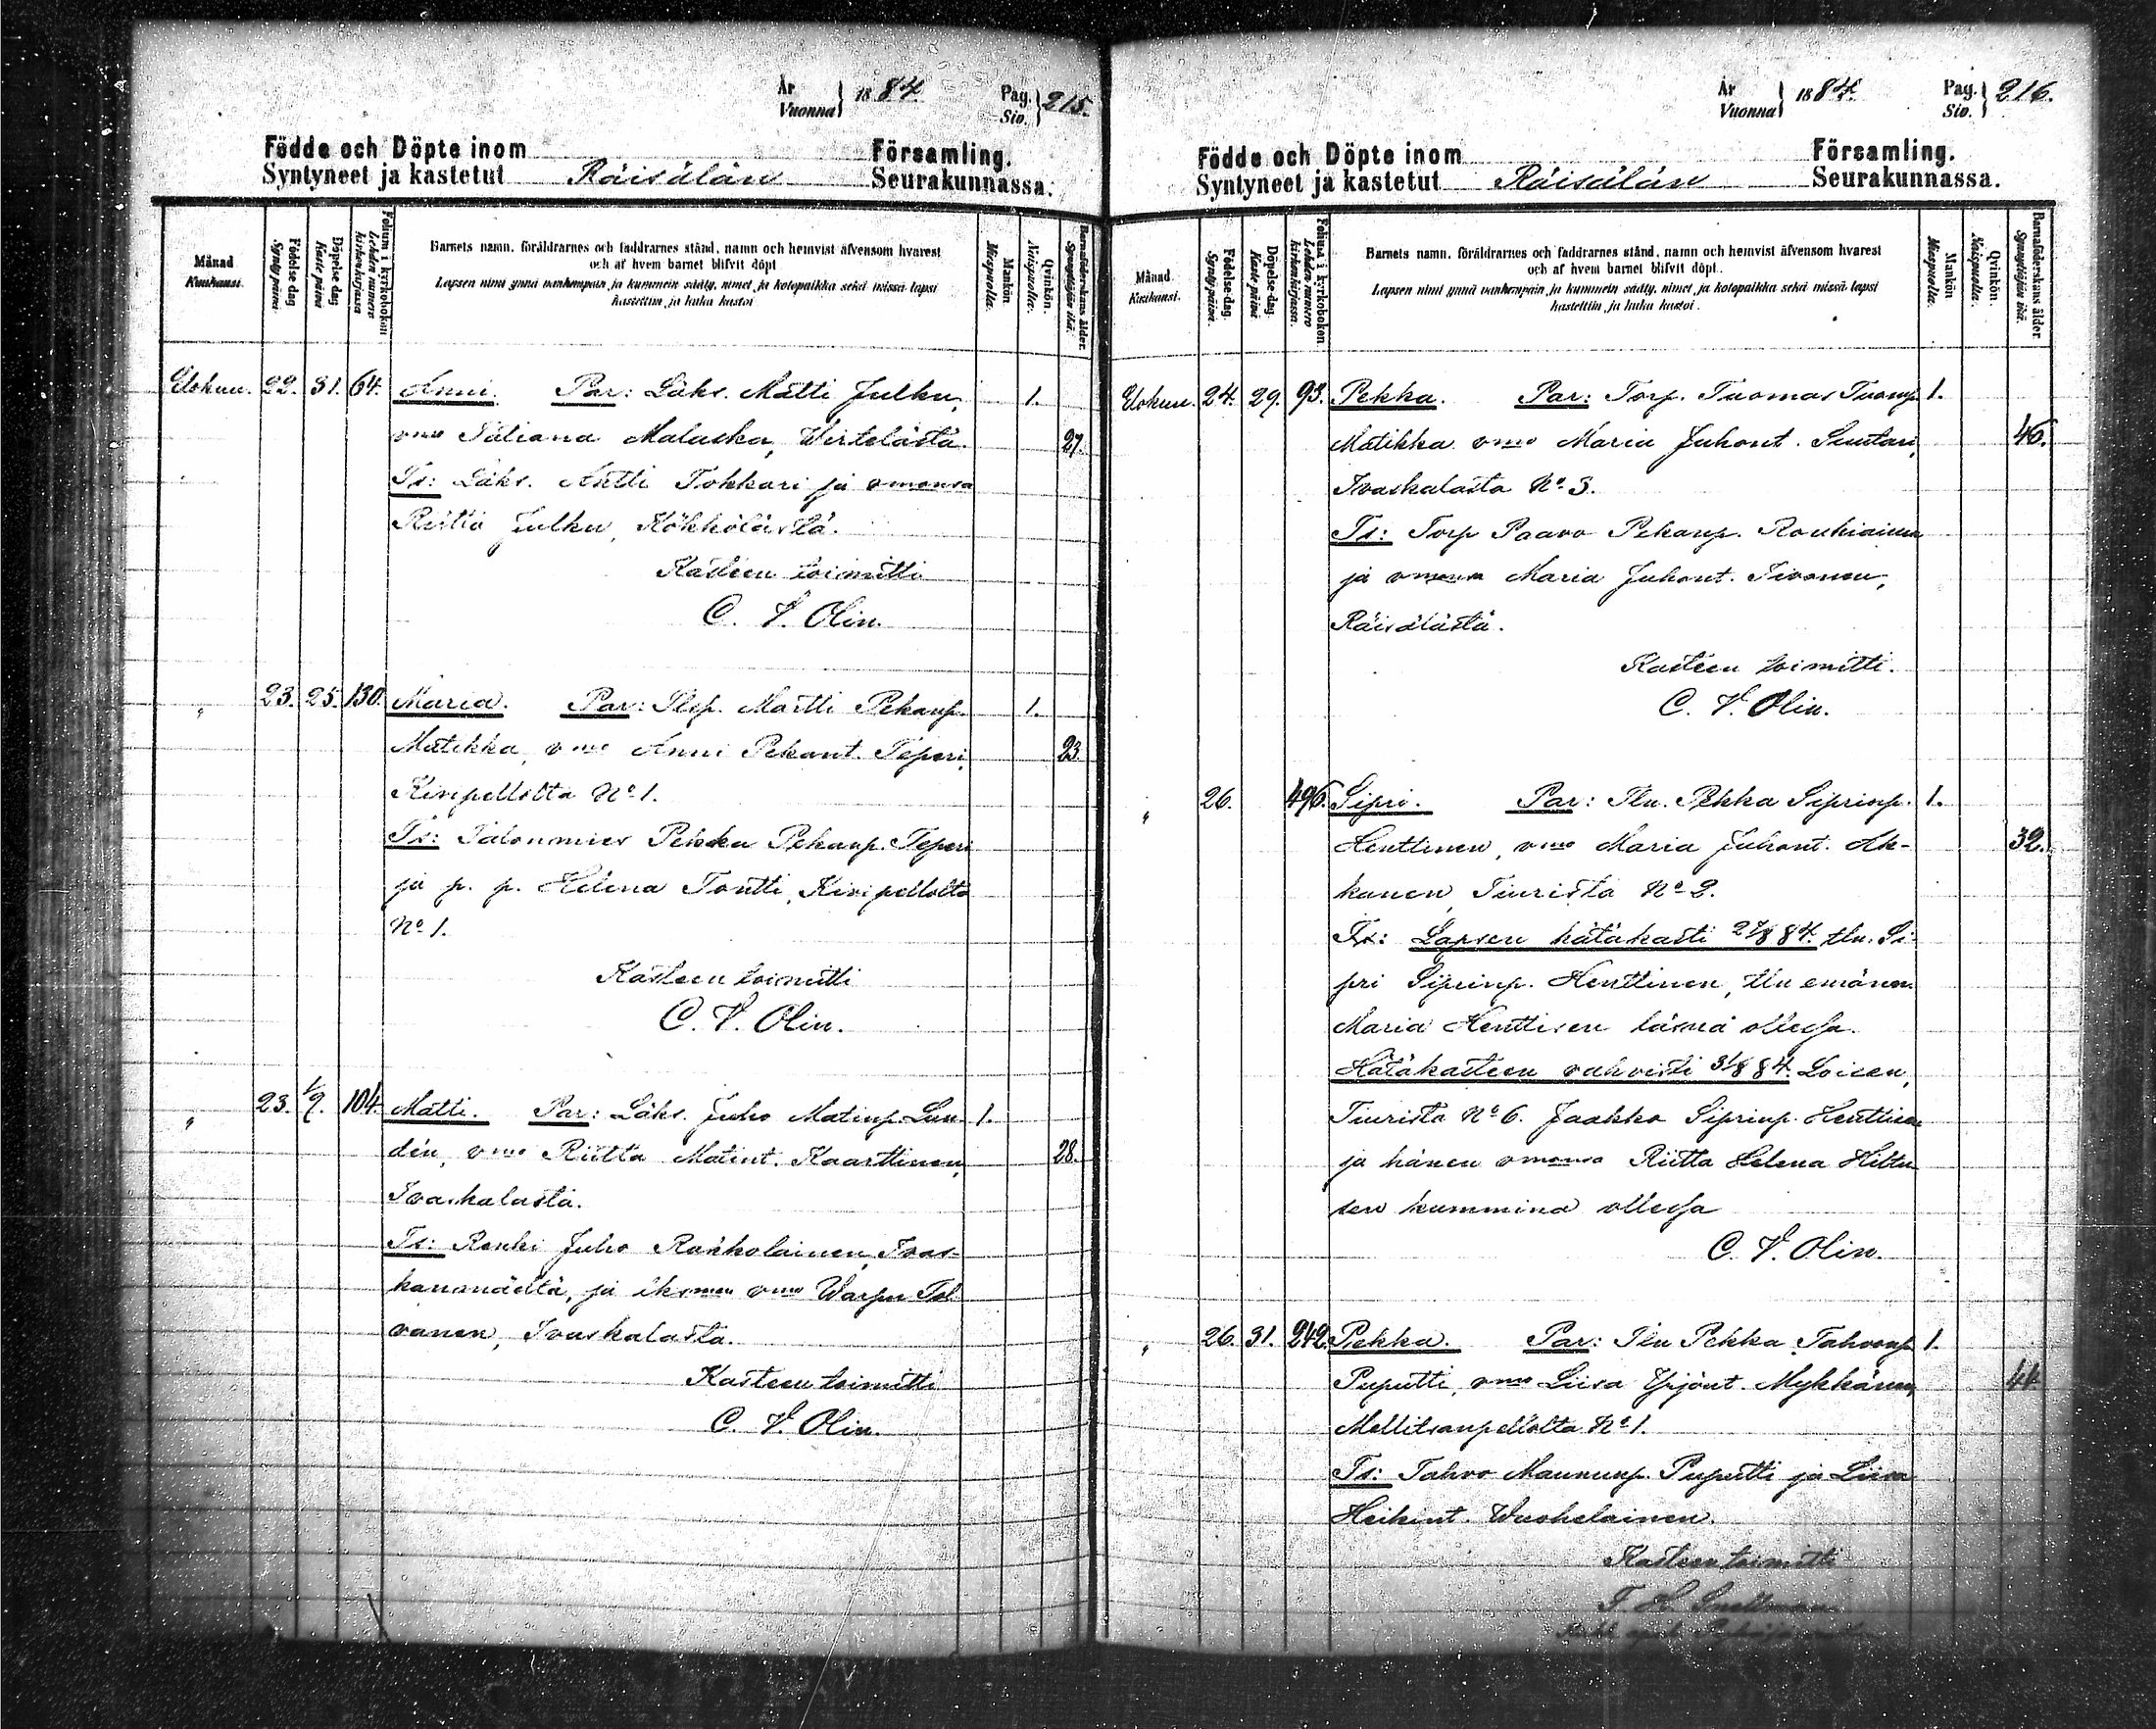 År
Vuonna } 1884.
Pag.
Siv. } 215.
Födde och Döpte inom Församling.
Syntyneet ja kastetut Räisälän Seurakunnassa.
Månad
Kuukausi.
Födelse-dag
Synty-päivä
Döpelse-dag
Kaste-päivä
Folium i kyrkoboken
Lehden numero kirkonkirjassa
Barnets namn, föräldrarnes och faddrarnes stånd, namn och hemvist äfvensom hvarest
och af hvem barnet blifvit döpt
Lapsen nimi ynnä vanhempain ja kummein sääty, nimet ja kotopaikka sekä missä lapsi
kastettiin ja kuka kastoi
Mankön
Miespuolta.
Qvinkön.
Naispuolta.
Barnaföderskans ålder.
Synnyttäjän ikä.
Elokuu. 22. 31. 64. Anni. Par: Läks. Matti Julku, 1.
vmo Tatiana Malaska, Wirtelästä. 27.
Ts: Läks. Antti Tokkari ja vmonsa
Riitta Julku, Kökkölästä.
Kasteen toimitti
C. V. Olin.
„ 23. 25. 130. Maria. Par: Tlsp. Martti Pekanp. 1.
Matikka, vmo Anni Pekant. Teperi, 23.
Kivipellolta No 1.
Ts: Talonmies Pekka Pekanp. Teperi
ja p. p. Helena Tontti, Kivipellolta
No 1.
Kasteen toimitti
C. V. Olin.
„ 23. 1/9. 104. Matti. Par: Läks. Juho Matinp. Lun- 1.
dén, vmo Riitta Matint. Kaarttinen, 28.
Ivaskalasta.
Ts: Renki Juho Rakkolainen, Ivas-
kanmäeltä, ja itsmen vmo Warpu Tol-
vanen, Ivaskalasta.
Kasteen toimitti
C. V. Olin.
År
Vuonna } 1884.
Pag.
Siv. } 216.
Födde och Döpte inom Församling.
Syntyneet ja kastetut Räisälän Seurakunnassa.
Månad
Kuukausi.
Födelse-dag.
Synty-päivä.
Döpelse-dag.
Kaste-päivä
Folium i kyrkoboken.
Lehden numero kirkonkirjassa.
Barnets namn, föräldrarnes och faddrarnes stånd, namn och hemvist äfvensom hvarest
och af hvem barnet blifvit döpt.
Lapsen nimi ynnä vanhempain ja kummein sääty, nimet ja kotopaikka sekä missä lapsi
kastettiin ja kuka kastoi.
Mankön
Miespuolta.
Qvinkön.
Naispuolta.
Barnaföderskans ålder.
Synnyttäjän ikä.
Elokuu. 24. 29. 93. Pekka. Par: Torp. Tuomas Tuomp. 1.
Matikka vmo Maria Juhont. Suutari, 46.
Ivaskalasta No 3.
Ts: Torp Paavo Pekanp. Rouhiainen
ja vmonsa Maria Juhont. Tivonen,
Räisälästä.
Kasteen toimitti.
C. V. Olin.
„ 26. 496. Sipri. Par: Tln. Pekka Siprinp. 1.
Henttinen, vmo Maria Juhont. Ak- 32.
kanen, Tiurista No 2.
Ts: Lapsen hätäkasti 27/8 84. tln. Si-
pri Siprinp. Henttinen, tln emänen
Maria Henttisen läsnä ollessa.
Hätäkasteen vahvisti 31/8 84. Loisen,
Tiurista No 6. Jaakko Siprinp. Henttisen
ja hänen vmonsa Riitta Helena Hiltu-
sen kummina ollessa
C. V. Olin.
„ 26. 31. 242. Pekka. Par: Tln Pekka Tahvonp. 1.
Puputti, vmo Liisa Yrjönt. Mykkänen, 44.
Mellitsanpellolta No 1.
Ts: Tahvo Maununp. Puputti ja Liisa
Heikint. Wuohelainen.
Kasteen toimitti
F. H. Snellman